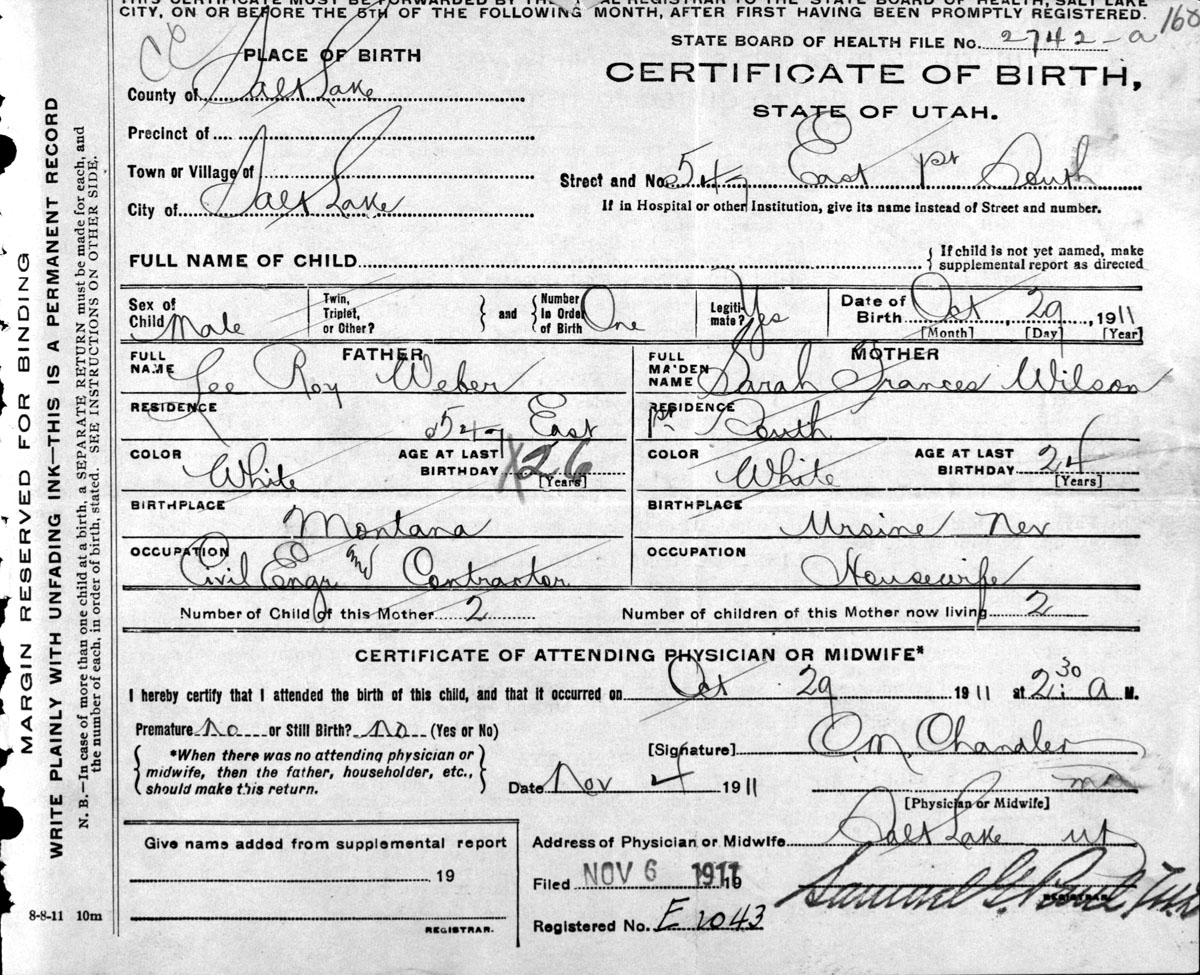 CITY, ON OR BEFORE THE 5TH OF THE FOLLOWING MONTH, AFTER FIRST HAVING BEEN PROMPTLY REGISTERED.
168
STATE BOARD OF HEALTH FILE No. 2742-a
PLACE OF BIRTH
CERTIFICATE OF BIRTH,
STATE OF UTAH.
County of Salt Lake
Precinct of
Town or Village of
City of Salt Lake
Street and No. 547 East 1st South
If in Hospital or other Institution, give its name instead of Street and number.
FULL NAME OF CHILD
If child is not yet named, make
supplemental report as directed
Sex of Child Male
Twin, Triplet, or Other?
and
Number in Order of Birth One
Legiti-mate? Yes
Date of Birth Oct 29, 1911
[Month] [Day] [Year]
FATHER
FULL NAME Lee Roy Weber
MOTHER
FULL MAIDEN NAME Sarah Frances Wilson
RESIDENCE 547 East
RESIDENCE 1st South
COLOR White
AGE AT LAST BIRTHDAY 26
[Years]
COLOR White
AGE AT LAST BIRTHDAY 24
[Years]
BIRTHPLACE Montana
BIRTHPLACE Ursine Nev
OCCUPATION Civil Engr. and Contractor
OCCUPATION Housewife
Number of Child of this Mother 2
Number of children of this Mother now living 2
CERTIFICATE OF ATTENDING PHYSICIAN OR MIDWIFE*
I hereby certify that I attended the birth of this child, and that it occurred on Oct 29 1911 at 2:30 A M.
Premature No or Still Birth? No (Yes or No)
*When there was no attending physician or
midwife, then the father, householder, etc.,
should make this return.
[Signature] O.M. Chandler
Date Nov 4 1911
MD
[Physician or Midwife]
Give name added from supplemental report
19
REGISTRAR.
Address of Physician or Midwife Salt Lake Ut
Filed NOV 6 1911 19
REGISTRAR
Registered No. E 1043
8-8-11 10m
MARGIN RESERVED FOR BINDING
WRITE PLAINLY WITH UNFADING INK—THIS IS A PERMANENT RECORD
N. B.—In case of more than one child at a birth, a SEPARATE RETURN must be made for each, and
the number of each, in order of birth, stated. SEE INSTRUCTIONS ON OTHER SIDE.